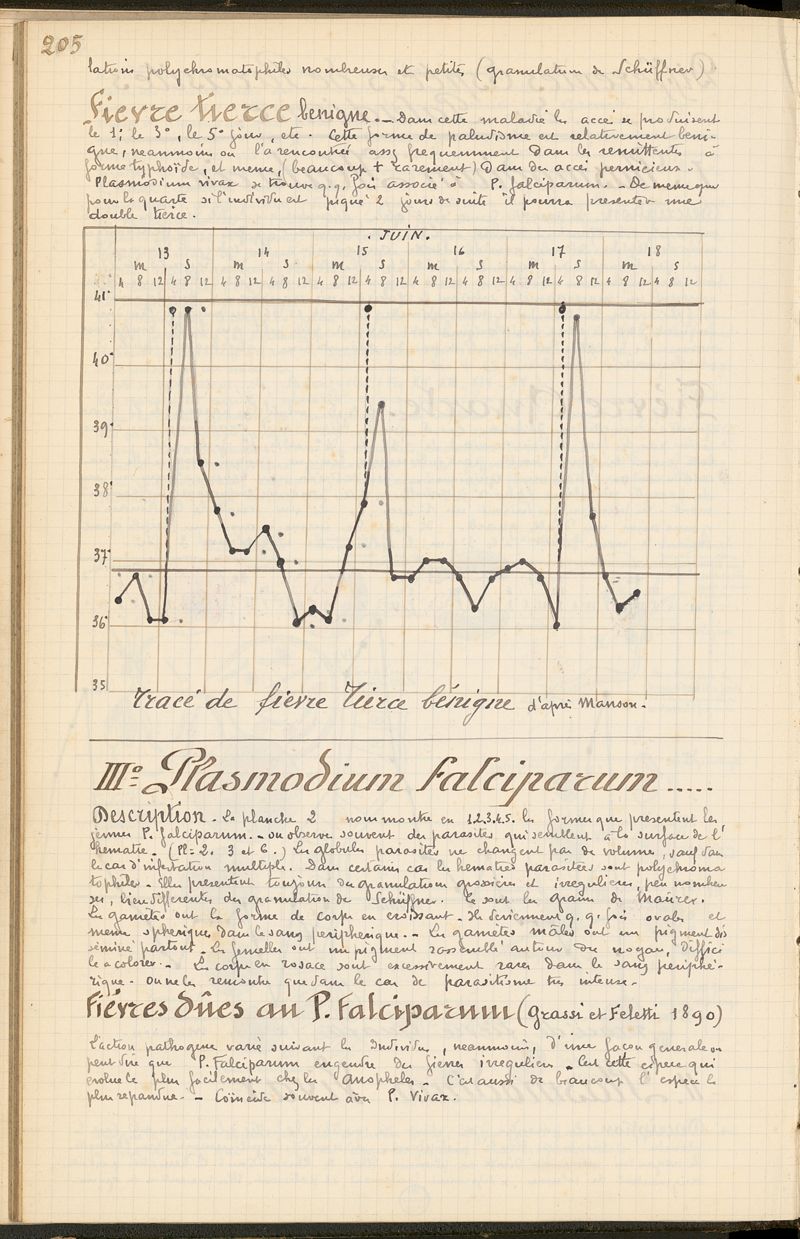 205
lations polychromatophiles nombreuses et petites (granulatum de Schüffner)
Fievre tierce benigne. — Dans cette maladie les acces se produisent
le 1: le 3°, le 5° jour, etc. Cette forme de paludisme est relativement beni-
gne, neanmoins on l'a rencontrée assez frequemment dans les remittentes à
forme typhoïde, et meme, (beaucoup + rarement) Dans des accès pernicieux -
Plasmodium vivax se trouve q.q. fois associé à P. falciparum. - De meme que
pour la quarte si l'individu est piqué 2 jours de suite il pourra presenter une
double tierce.
. JUIN.
13 14 15 16 17 18
m s m s m s m s m s m s
4 8 12 4 8 12 4 8 12 4 8 12 4 8 12 4 8 12 4 8 12 4 8 12 4 8 12 4 8 12 4 8 12 4 8 12
41°
40°
39°
38°
37°
36°
35
tracé de fievre Tierce bénigne d'après Manson.
III° Plasmodium Falciparum .....
Description. La planche 2 nous montre en 1.2.3.4.5. les formes que presentent les
jeunes P. falciparum. - on observe souvent des parasites qui semblent à la surface de l'
hematie. (Pl= 2. 3 et 6.) Les globules parasités ne changent pas de volume, sauf dans
le cas d'infestation multiple. Dans certains cas les hematies parasitées sont polychroma
tophiles - Elles presentent toujours des granulations grossières et irregulieres, peu nombreu
ses, bien differentes des granulations de Schüffner. Ce sont les grains de Maürer.
Les gamètes ont la forme de corps en croissant. - Ils deviennent q.q. fois ovales et
meme spheriques dans le sang peripherique. - Les gamètes mâles ont un pigment dis
séminé partout - Les femelles ont un pigment rassemblé autour du noyau, difficí
le a colorer. - Les corps en rosace sont excessivement rares dans le sang periphé-
rique. on ne les rencontre que dans le cas de parasitisme tres intense.
Fiévres dûes au P. Falciparum (Grassi et Feletti 1890)
L'action pathogene varie suivant les Individus, neanmoins, d'une façon generale on
peut dire que P. Falciparum engendre des fievres irregulieres - C'est cette espece qui
evolue le plus facilement chez les Anopheles - C'est aussi de beaucoup l'espece la
plus repandue. - Coincide souvent avec P. Vivax.